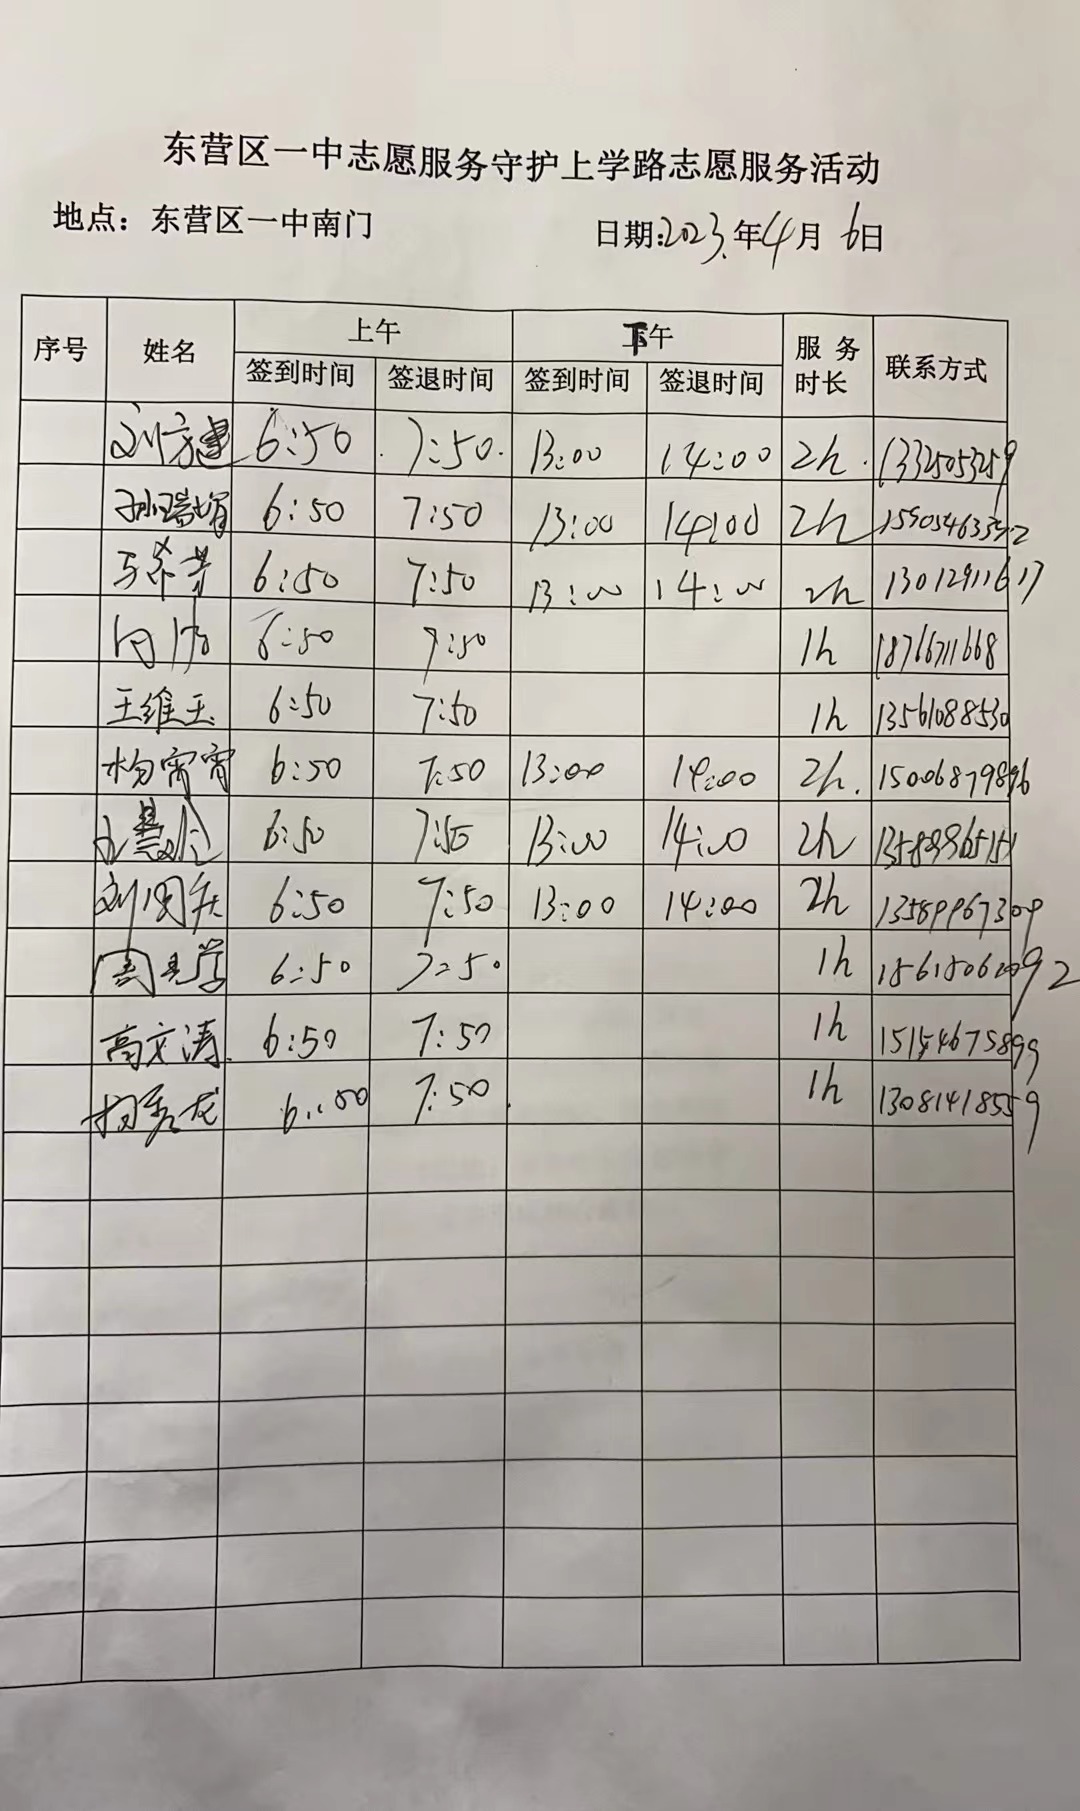 东营区一中志愿服务守护上学路志愿服务活动
地点：东营区一中南门 日期:2023.年4月6日
序号 姓名 上午 下午 服务时长 联系方式
签到时间 签退时间 签到时间 签退时间
刘方建 6:50 7:50. 13:00 14:00 2h. 13325053259
孙瑞娟 6:50 7:50 13:00 14:00 2h
6:50 7:50 13:00 14:00 2h 13012911617
6:50 7:50 1h 18766711668
王维玉 6:50 7:50 1h 13561088530
杨宵宵 6:50 7:50 13:00 14:00 2h. 15006879896
6:50 7:50 13:00 14:00 2h
刘国庆 6:50 7:50 13:00 14:00 2h 13589967309
6:50 7:50 1h
高文涛. 6:50 7:50 1h 15154675899
杨秀龙 6:50 7:50. 1h 13081418559